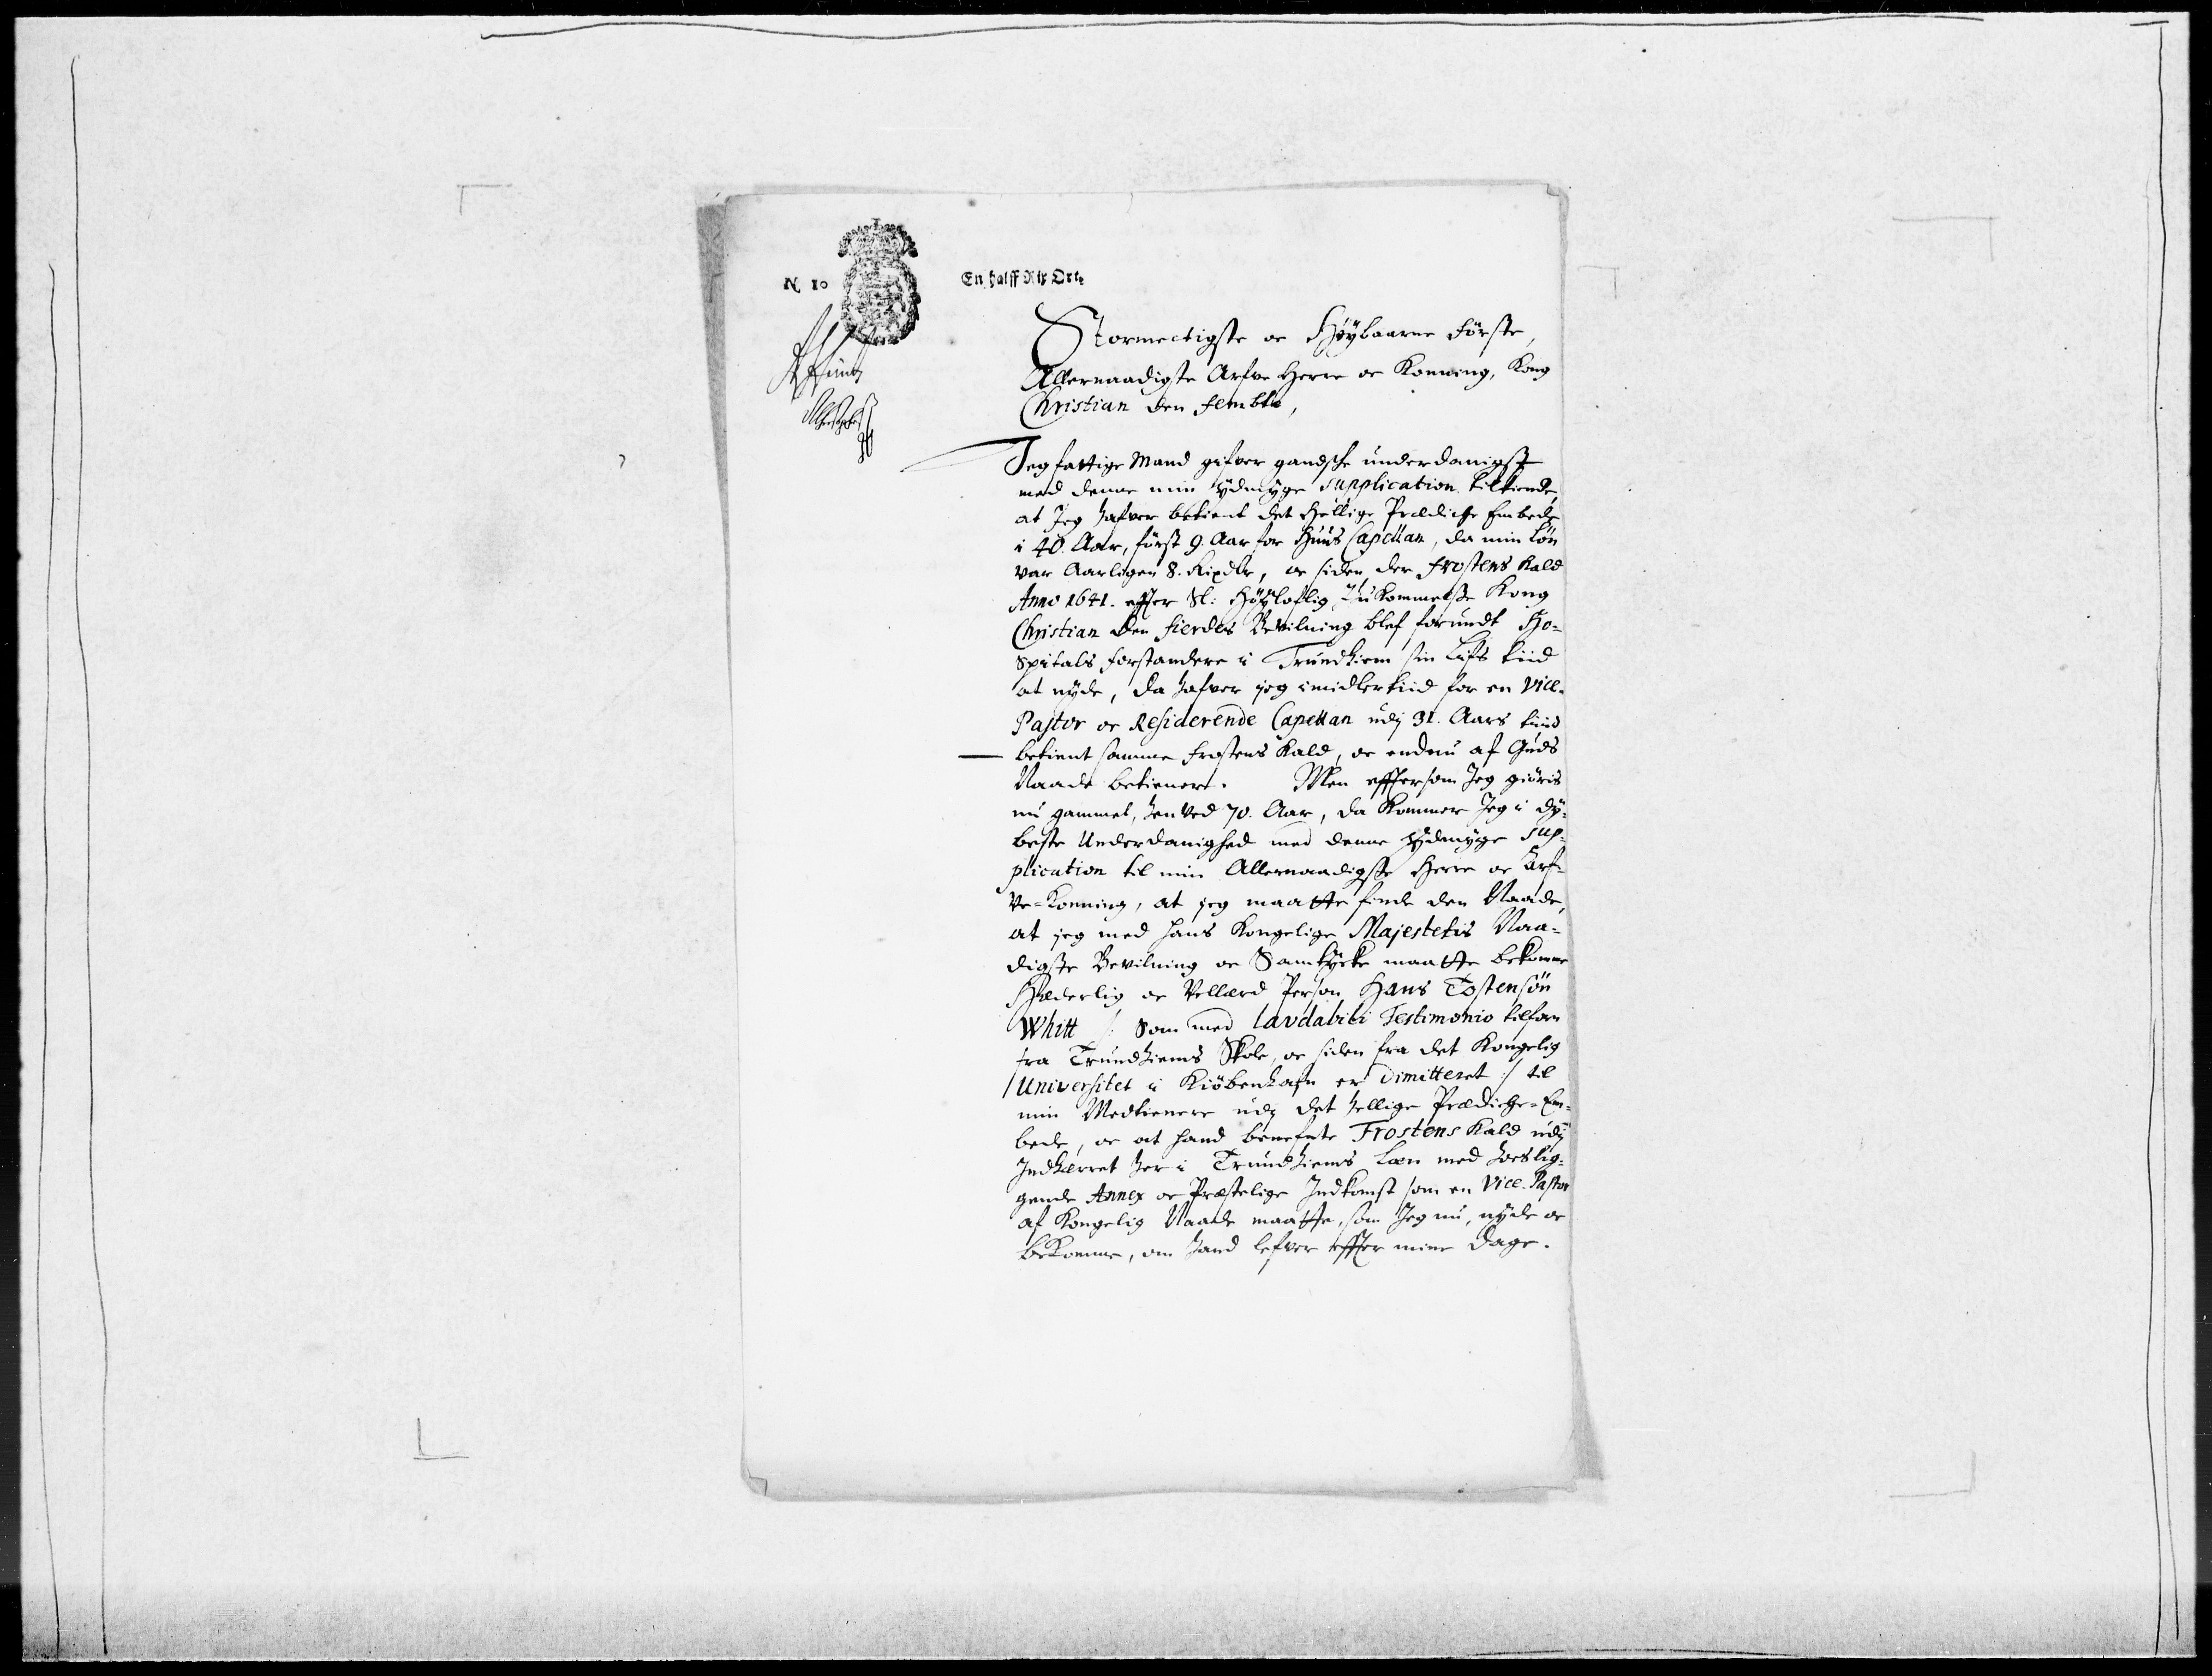 N 10
En halff Rix Ort
Stormectigste oc Høybaarne Förste,
Allernaadigste Arfve Herre oc Konning, Kong
Christian den fembte,
Jeg fattige Mand gifver gandsche underdanigst
med denne min ydmyge supplication tilkiende,
at Jeg hafver betient det Hellige Prædiche Embede
i 40. Aar, först 9. Aar for Huus Capellan, da min Løn
var Aarligen 8. Rixdlr, oc siden der Frostens Kald
Anno 1641. effter Sl: Høyloflig Ihukommelse Kong
Christian den fierdes Bevilning blef forundt Ho-
spitals forstandere i Trundhiem sin Lifs tiid
at nyde, da hafver jeg imidlertiid for en Vice-
Pastor oc Residerende Capellan udj 31. Aars tiid
betient samme Frostens Kald, oc endnu af Guds
Naade betienere. Men efftersom Jeg giöris
nu gammel, hen ved 70. Aar, da kommer Jeg i dy-
beste Underdanighed med denne ydmyge sup-
plication til min Allernaadigste Herre oc Arf-
ve-Konning, at jeg maatte finde den Naade,
at jeg med hans Kongelige Majestetis Naa-
digste Bevilning oc Samtycke maatte bekomme
Hæderlig oc Vellærd Person Hans Tostensön
Whitt /: Som med laudabili Testimonio tilforn
fra Trundhiems Skole, oc siden fra det Kongelig
Universitet i Kiöbenhafn er Dimitteret :/ til
min Medtienere udj det hellige Prædiche-Em-
bede, oc at hand benefnte Frostens Kald udj
Indherret her i Trundhiems Læn med hoslig-
gende Annex oc Præstelige Indkomst som en Vice-Pastor
af Kongelig Naade maatte, som Jeg nu, nyde oc
bekomme, om hand lefver effter mine Dage.